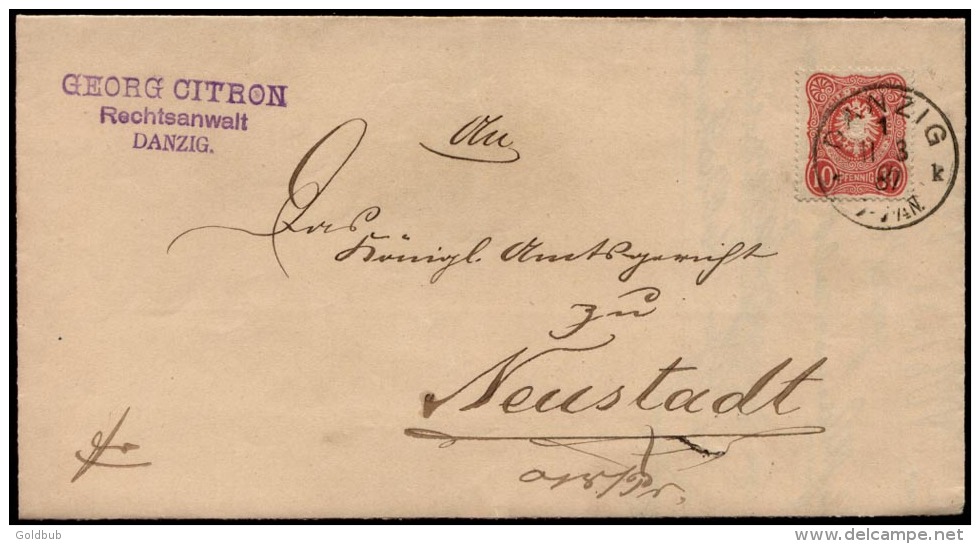 GEORG CITRON
Rechtsanwalt
DANZIG.
An
Das
Königl. Amtsgericht
zu
Neustadt
W/Pr.
fr
DANZIG
1
11 3
87
k
10 PFENNIG
Goldbub
delcampe.net